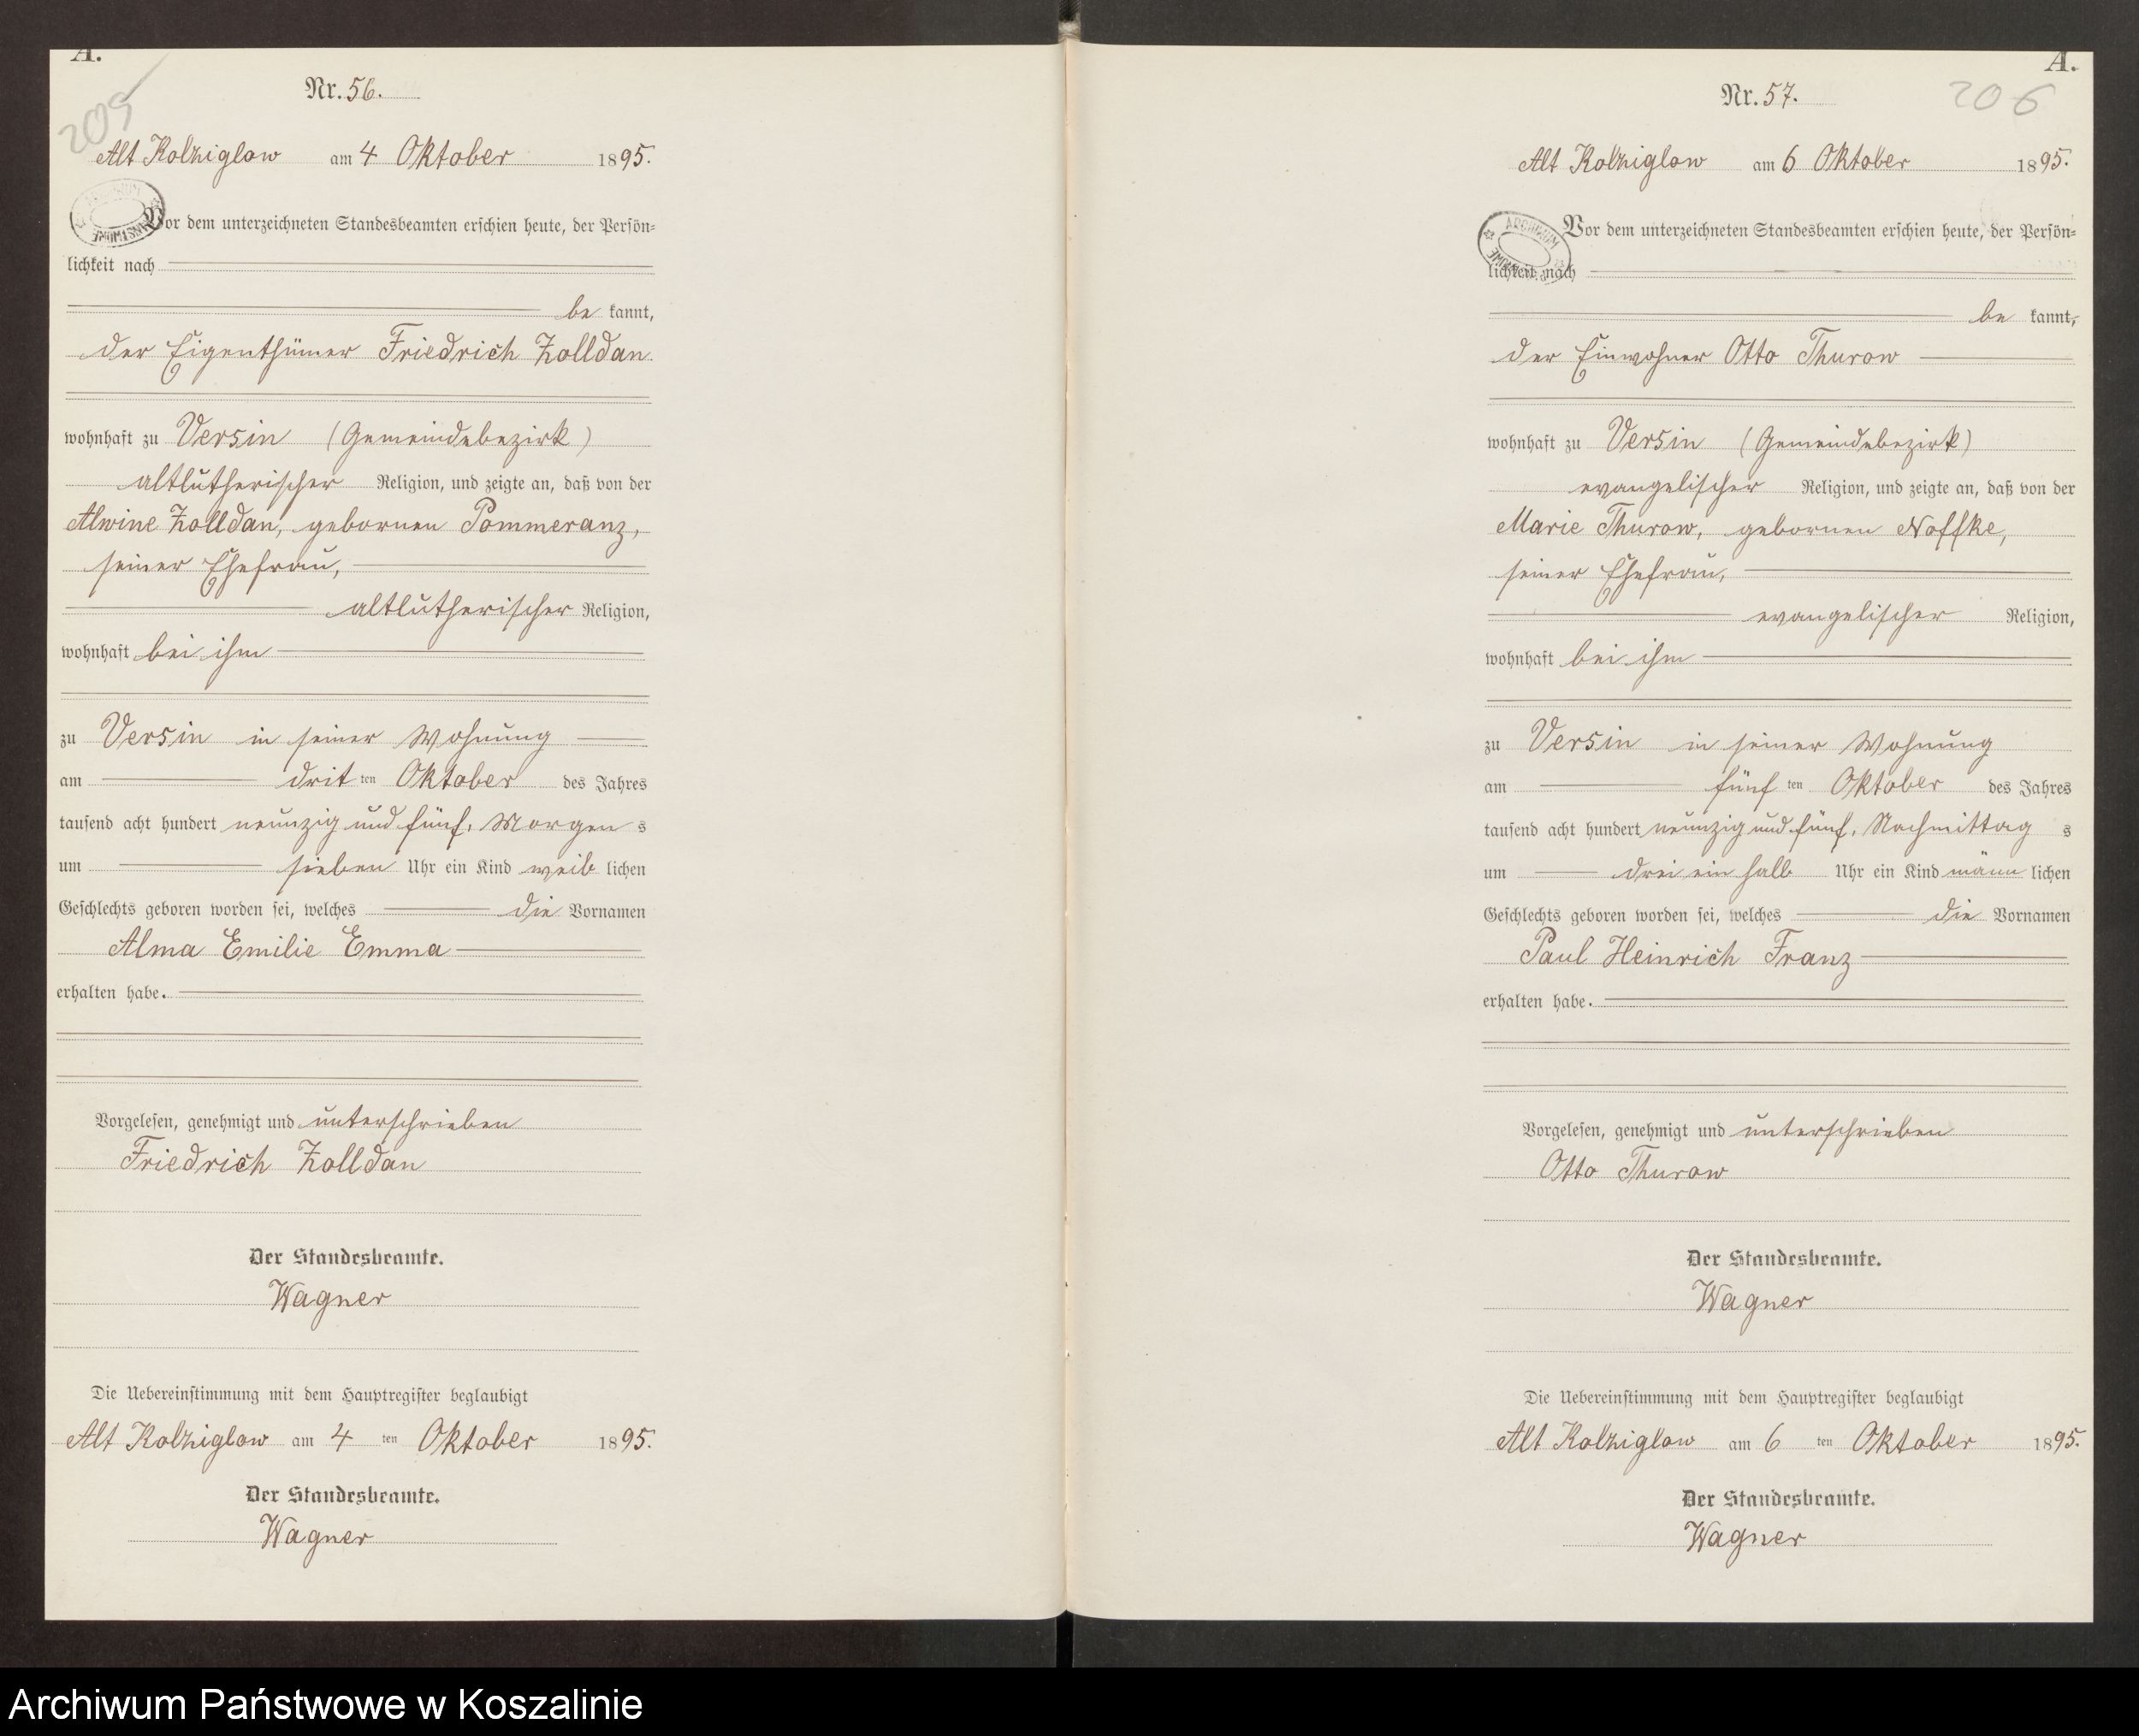 A.
Nr. 56.
205
Alt Kolziglow am 4 Oktober 1895.
Vor dem unterzeichneten Standesbeamten erschien heute, der Persön=
lichkeit nach
be kannt,
der Eigenthümer Friedrich Zolldan
wohnhaft zu Versin (Gemeindebezirk)
altlutherischer Religion, und zeigte an, daß von der
Alwine Zolldan, gebornen Pommeranz,
seiner Ehefrau,
altlutherischer Religion,
wohnhaft bei ihm
zu Versin in seiner Wohnung
am drit ten Oktober des Jahres
tausend acht hundert neunzig und fünf, Morgen s
um sieben Uhr ein Kind weib lichen
Geschlechts geboren worden sei, welches die Vornamen
Alma Emilie Emma
erhalten habe.
Vorgelesen, genehmigt und unterschrieben
Friedrich Zolldan
Der Standesbeamte.
Wagner
Die Uebereinstimmung mit dem Hauptregister beglaubigt
Alt Kolziglow am 4 ten Oktober 1895.
Der Standesbeamte.
Wagner
A.
Nr. 57.
206
Alt Kolziglow am 6 Oktober 1895.
ARCHIWUM
Vor dem unterzeichneten Standesbeamten erschien heute, der Persön=
lichkeit nach
be kannt,
der Einwohner Otto Thurow
wohnhaft zu Versin (Gemeindebezirk)
evangelischer Religion, und zeigte an, daß von der
Marie Thurow, gebornen Noffke,
seiner Ehefrau,
evangelischer Religion,
wohnhaft bei ihm
zu Versin in seiner Wohnung
am fünf ten Oktober des Jahres
tausend acht hundert neunzig und fünf, Nachmittag s
um drei ein halb Uhr ein Kind männ lichen
Geschlechts geboren worden sei, welches die Vornamen
Paul Heinrich Franz
erhalten habe.
Vorgelesen, genehmigt und unterschrieben
Otto Thurow
Der Standesbeamte.
Wagner
Die Uebereinstimmung mit dem Hauptregister beglaubigt
Alt Kolziglow am 6 ten Oktober 1895.
Der Standesbeamte.
Wagner
Archiwum Państwowe w Koszalinie